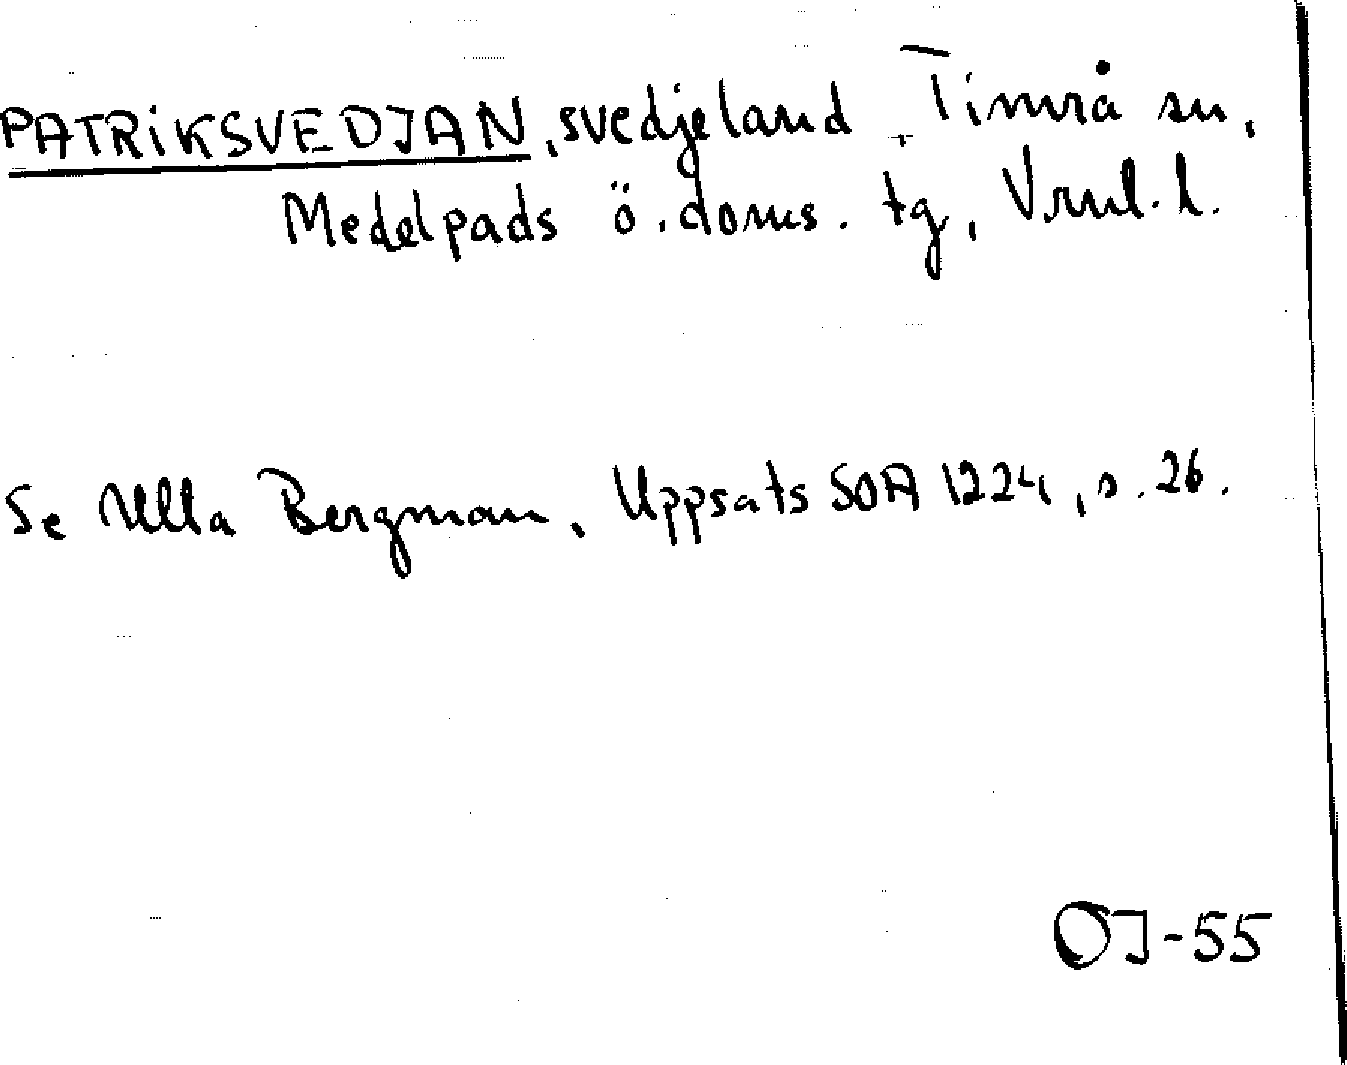 PATRIKSVEDJAN, svedjeland, Timrå sn,
Medelpads ö. doms. tg, Vrnl. l.
Se Ulla Bergman, Uppsats SOA 1224, s. 26.
OJ-55